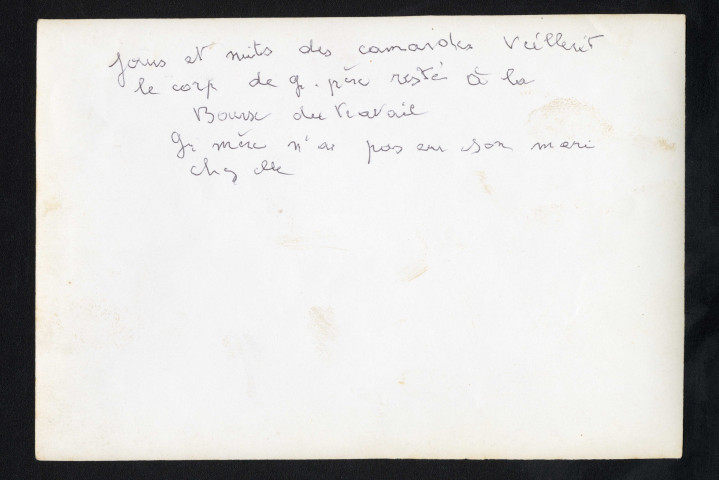 Jours et nuits des camarades veillerent
le corp de gr. père resté à la
Bourse du travail
Gr mère n'a pas eu son mari
chez elle